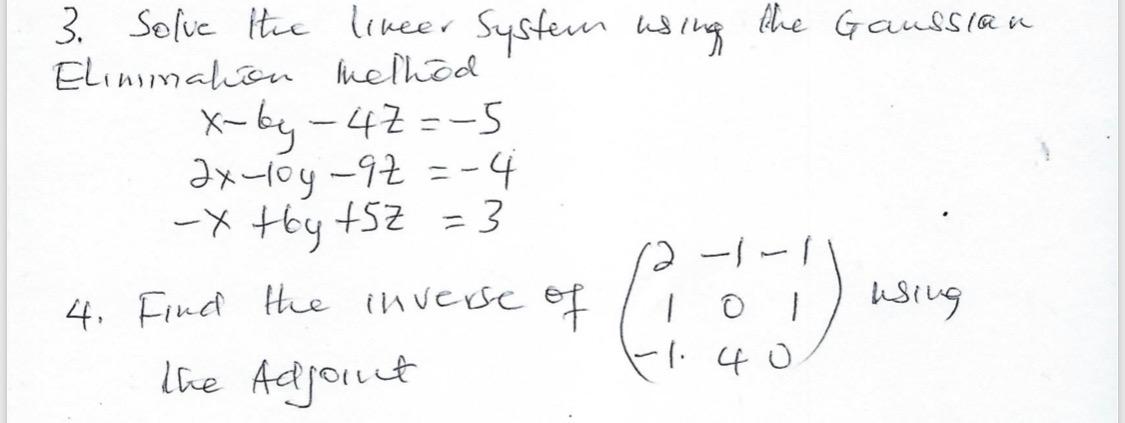 3. Solve the lineer System using the Gaussian
Elimination Method
x-6y-4z=-5
2x-10y-9z=-4
-x+6y+5z=3
4. Find the inverse of (2 -1 -1
1 0 1
-1. 4 0) using
the Adjoint